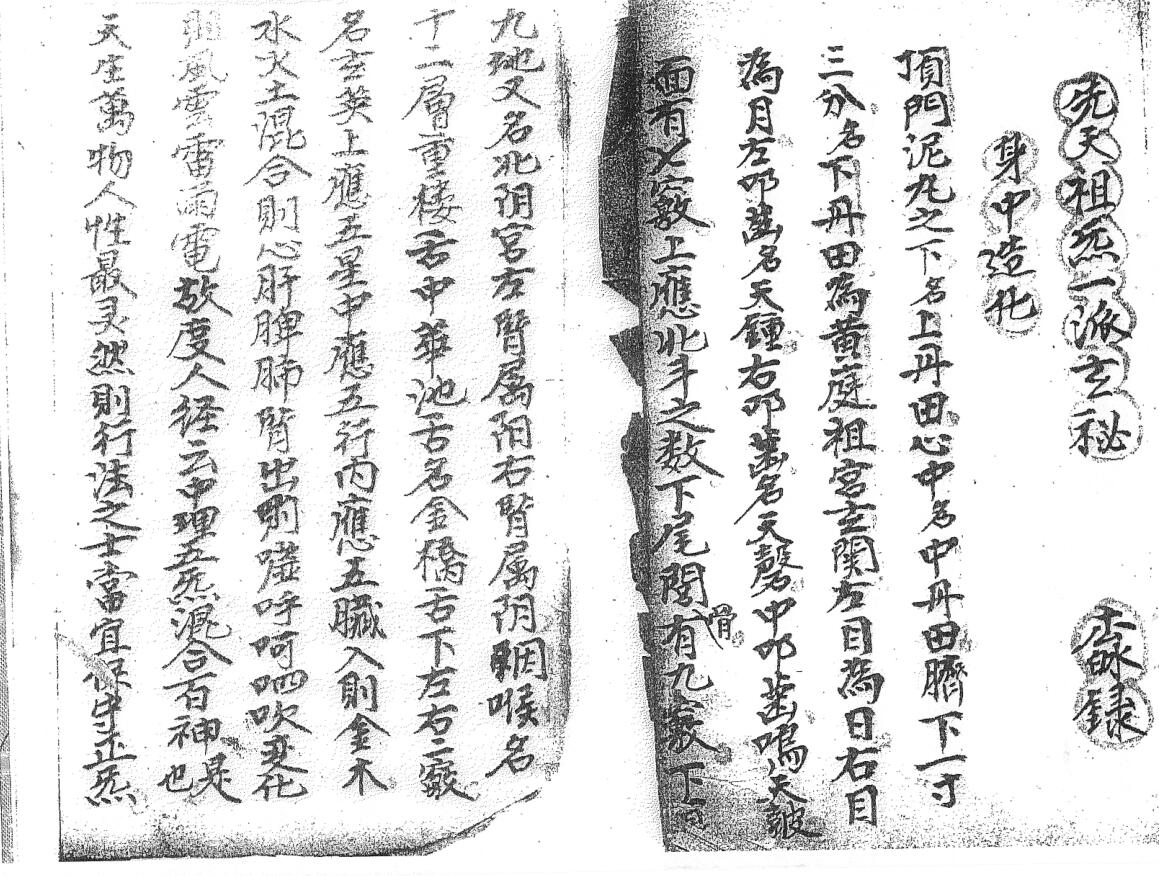 先天祖炁一派玄秘　錄
身中造化
頂門泥丸之下名上丹田心中名中丹田臍下一寸
三分名下丹田為黃庭祖宮玄関左目為日右目
為月左叩齒名天鍾右叩齒名天磬中叩齒鳴天皷
面有七竅上應北斗之数下尾閭骨有九竅下
九地又名北阴宮左腎属阳右腎属阴咽喉名
十二層重楼舌中華池舌名金橋舌下左右二竅
名玄英上應五星中應五行内應五臟入則金木
水火土混合則心肝脾肺腎出則噓呼呵呬吹変化
風雲雷雨電故度人経云中理五炁混合百神是也
天生萬物人性最灵然則行法之士當宜保守正炁